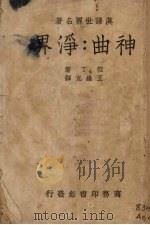 漢譯世界名著
神曲：淨界
但丁著
王維克譯
商務印書館發行